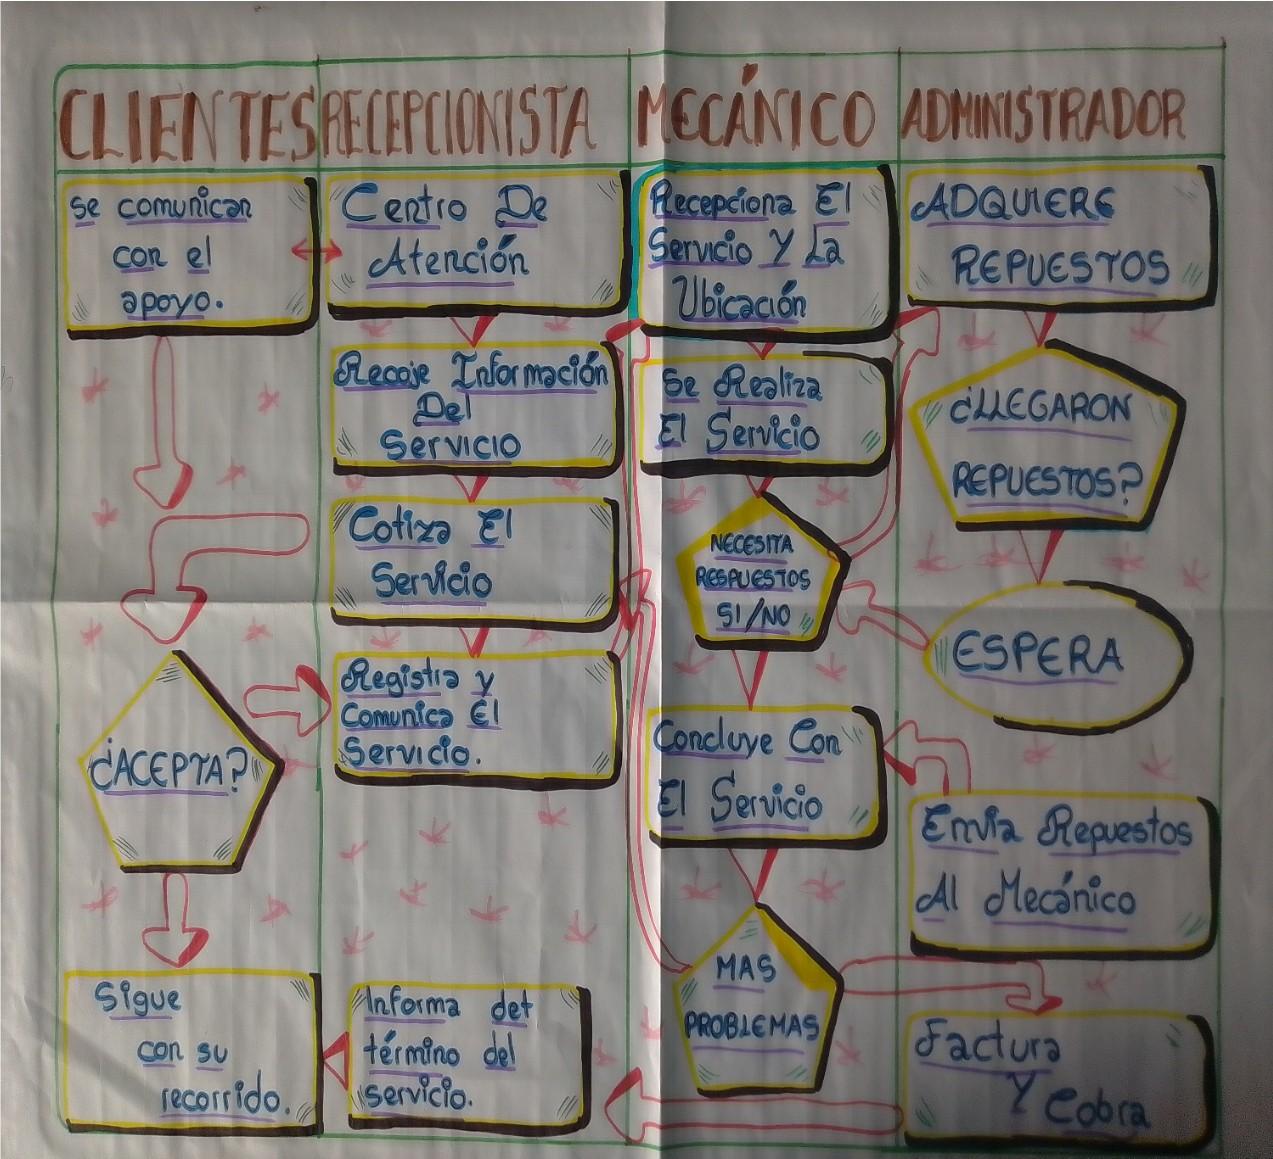 CLIENTES
RECEPCIONISTA
MECÁNICO
ADMINISTRADOR
se comunican
con el
apoyo.
Centro De
Atención
Recepciona El
Servicio Y La
Ubicación
ADQUIERE
REPUESTOS
Recoje Información
Del
Servicio
Se Realiza
El Servicio
¿LLEGARON
REPUESTOS?
Cotiza El
Servicio
NECESITA
RESPUESTOS
SI/NO
ESPERA
¿ACEPTA?
Registra y
Comunica El
Servicio.
Concluye Con
El Servicio
Envia Repuestos
Al Mecánico
MAS
PROBLEMAS
Sigue
con su
recorrido.
Informa det
término del
servicio.
Factura
Y Cobra